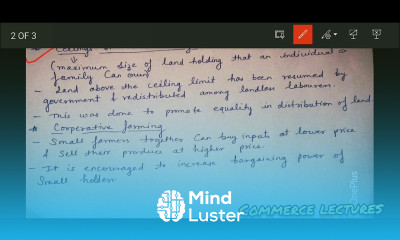 2 OF 3
Ceilings
(maximum size of land holding that an individual
family can own)
- Land above the ceiling limit has been resumed by
government & redistributed among landless labourers.
- This was done to promote equality in distribution of land
* Corporative farming
- Small farmers together can buy inputs at lower price
& sell there produce at higher price.
- It is encouraged to increase bargaining power of
small holders
Mind
Luster
COMMERCE LECTURES